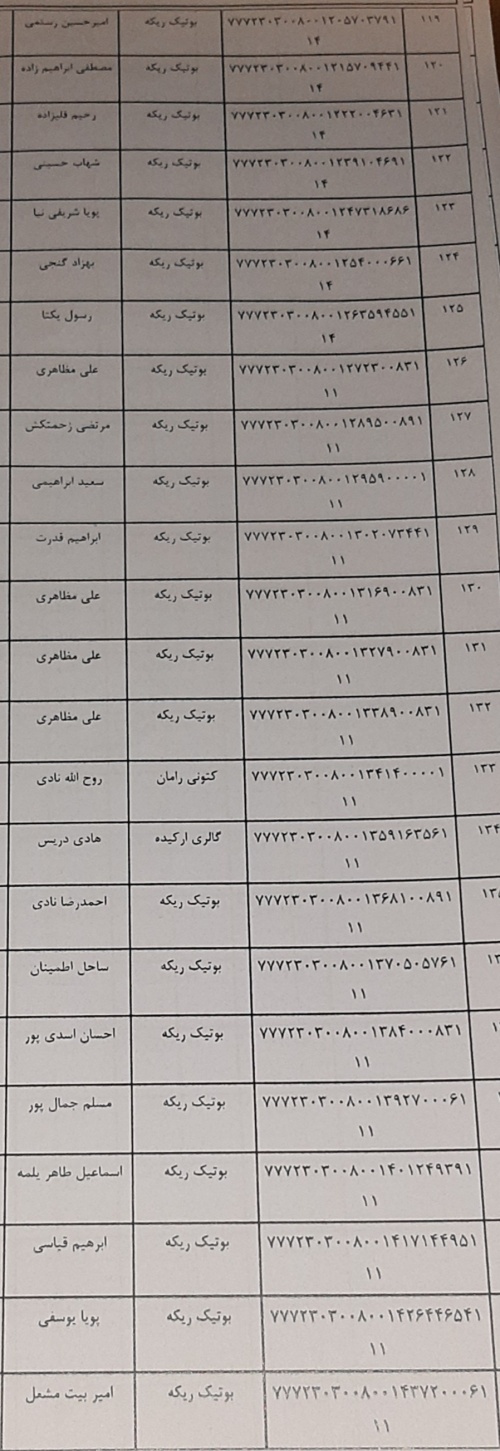 ۱۱۹ ۷۷۷۲۳۰۳۰۰۸۰۰۱۲۰۵۷۰۳۷۹۱ بوتیک ریکه امیرحسین رستمی
۱۴
۱۲۰ ۷۷۷۲۳۰۳۰۰۸۰۰۱۲۱۵۷۰۹۴۴۱ بوتیک ریکه مصطفی ابراهیم زاده
۱۴
۱۲۱ ۷۷۷۲۳۰۳۰۰۸۰۰۱۲۲۲۰۰۴۶۳۱ بوتیک ریکه رحیم قلیزاده
۱۴
۱۲۲ ۷۷۷۲۳۰۳۰۰۸۰۰۱۲۳۹۱۰۴۶۹۱ بوتیک ریکه شهاب حسینی
۱۴
۱۲۳ ۷۷۷۲۳۰۳۰۰۸۰۰۱۲۴۷۳۱۸۶۸۶ بوتیک ریکه پویا شریفی نیا
۱۴
۱۲۴ ۷۷۷۲۳۰۳۰۰۸۰۰۱۲۵۴۰۰۰۶۶۱ بوتیک ریکه بهزاد گنجی
۱۴
۱۲۵ ۷۷۷۲۳۰۳۰۰۸۰۰۱۲۶۳۵۹۴۵۵۱ بوتیک ریکه رسول یکتا
۱۴
۱۲۶ ۷۷۷۲۳۰۳۰۰۸۰۰۱۲۷۲۳۰۰۸۳۱ بوتیک ریکه علی مظاهری
۱۱
۱۲۷ ۷۷۷۲۳۰۳۰۰۸۰۰۱۲۸۹۵۰۰۸۹۱ بوتیک ریکه مرتضی زحمتکش
۱۱
۱۲۸ ۷۷۷۲۳۰۳۰۰۸۰۰۱۲۹۵۹۰۰۰۰۱ بوتیک ریکه سعید ابراهیمی
۱۱
۱۲۹ ۷۷۷۲۳۰۳۰۰۸۰۰۱۳۰۲۰۷۳۴۴۱ بوتیک ریکه ابراهیم قدرت
۱۱
۱۳۰ ۷۷۷۲۳۰۳۰۰۸۰۰۱۳۱۶۹۰۰۸۳۱ بوتیک ریکه علی مظاهری
۱۱
۱۳۱ ۷۷۷۲۳۰۳۰۰۸۰۰۱۳۲۷۹۰۰۸۳۱ بوتیک ریکه علی مظاهری
۱۱
۱۳۲ ۷۷۷۲۳۰۳۰۰۸۰۰۱۳۳۸۹۰۰۸۳۱ بوتیک ریکه علی مظاهری
۱۱
۱۳۳ ۷۷۷۲۳۰۳۰۰۸۰۰۱۳۴۱۴۰۰۰۰۱ کتونی رامان روح الله نادی
۱۱
۱۳۴ ۷۷۷۲۳۰۳۰۰۸۰۰۱۳۵۹۱۶۳۵۶۱ گالری ارکیده هادی دریس
۱۱
۷۷۷۲۳۰۳۰۰۸۰۰۱۳۶۸۱۰۰۸۹۱ بوتیک ریکه احمدرضا نادی
۱۱
۷۷۷۲۳۰۳۰۰۸۰۰۱۳۷۰۵۰۵۷۶۱ بوتیک ریکه ساحل اطمینان
۱۱
۷۷۷۲۳۰۳۰۰۸۰۰۱۳۸۴۰۰۰۸۳۱ بوتیک ریکه احسان اسدی پور
۱۱
۷۷۷۲۳۰۳۰۰۸۰۰۱۳۹۲۷۰۰۰۶۱ بوتیک ریکه مسلم جمال پور
۱۱
۷۷۷۲۳۰۳۰۰۸۰۰۱۴۰۱۲۴۹۳۹۱ بوتیک ریکه اسماعیل طاهر یلمه
۱۱
۷۷۷۲۳۰۳۰۰۸۰۰۱۴۱۷۱۴۴۹۵۱ بوتیک ریکه ابرهیم قیاسی
۱۱
۷۷۷۲۳۰۳۰۰۸۰۰۱۴۲۶۴۴۶۵۴۱ بوتیک ریکه پویا یوسفی
۱۱
۷۷۷۲۳۰۳۰۰۸۰۰۱۴۳۷۲۰۰۰۶۱ بوتیک ریکه امیر بیت مشعل
۱۱